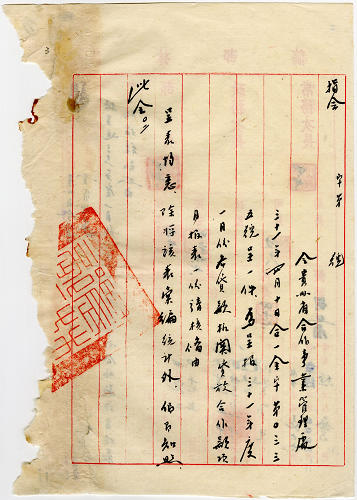 指令
字第 號
令貴州省合作事業管理處
三十一年四月十日合一金字第〇三三
五號呈一件為呈報三十一年度
一月份各貸款機關貸放合作款項
月報表一份請核備由
呈表均悉除將該表彙編統計外仰即知照
此令。